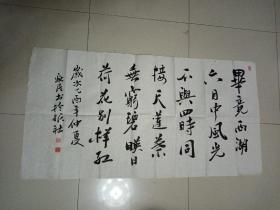 畢竟西湖
六月中風光
不與四時同
接天蓮葉
無窮碧暎日
荷花别樣紅
歲次 年仲夏
書於 社